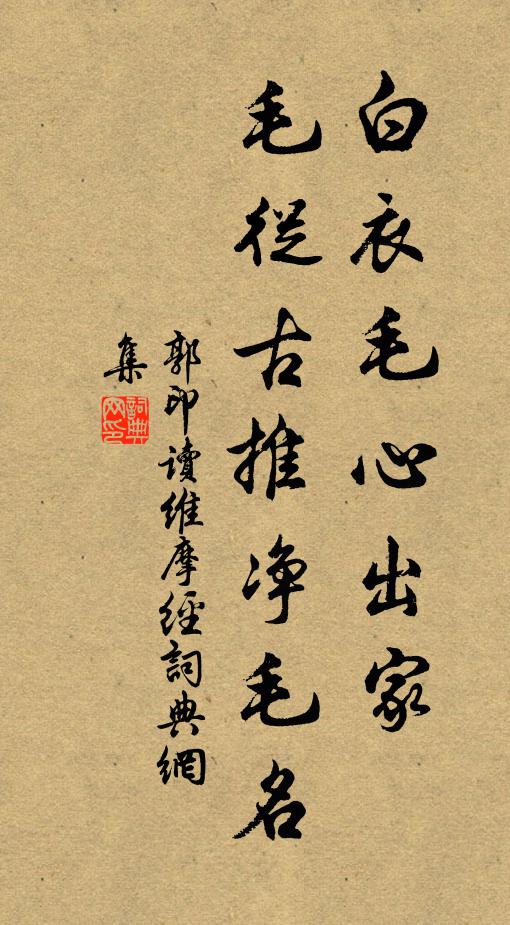 白衣毛心出家
毛從古推净毛名
郭印讀維摩經詞典網
集
詞典網印